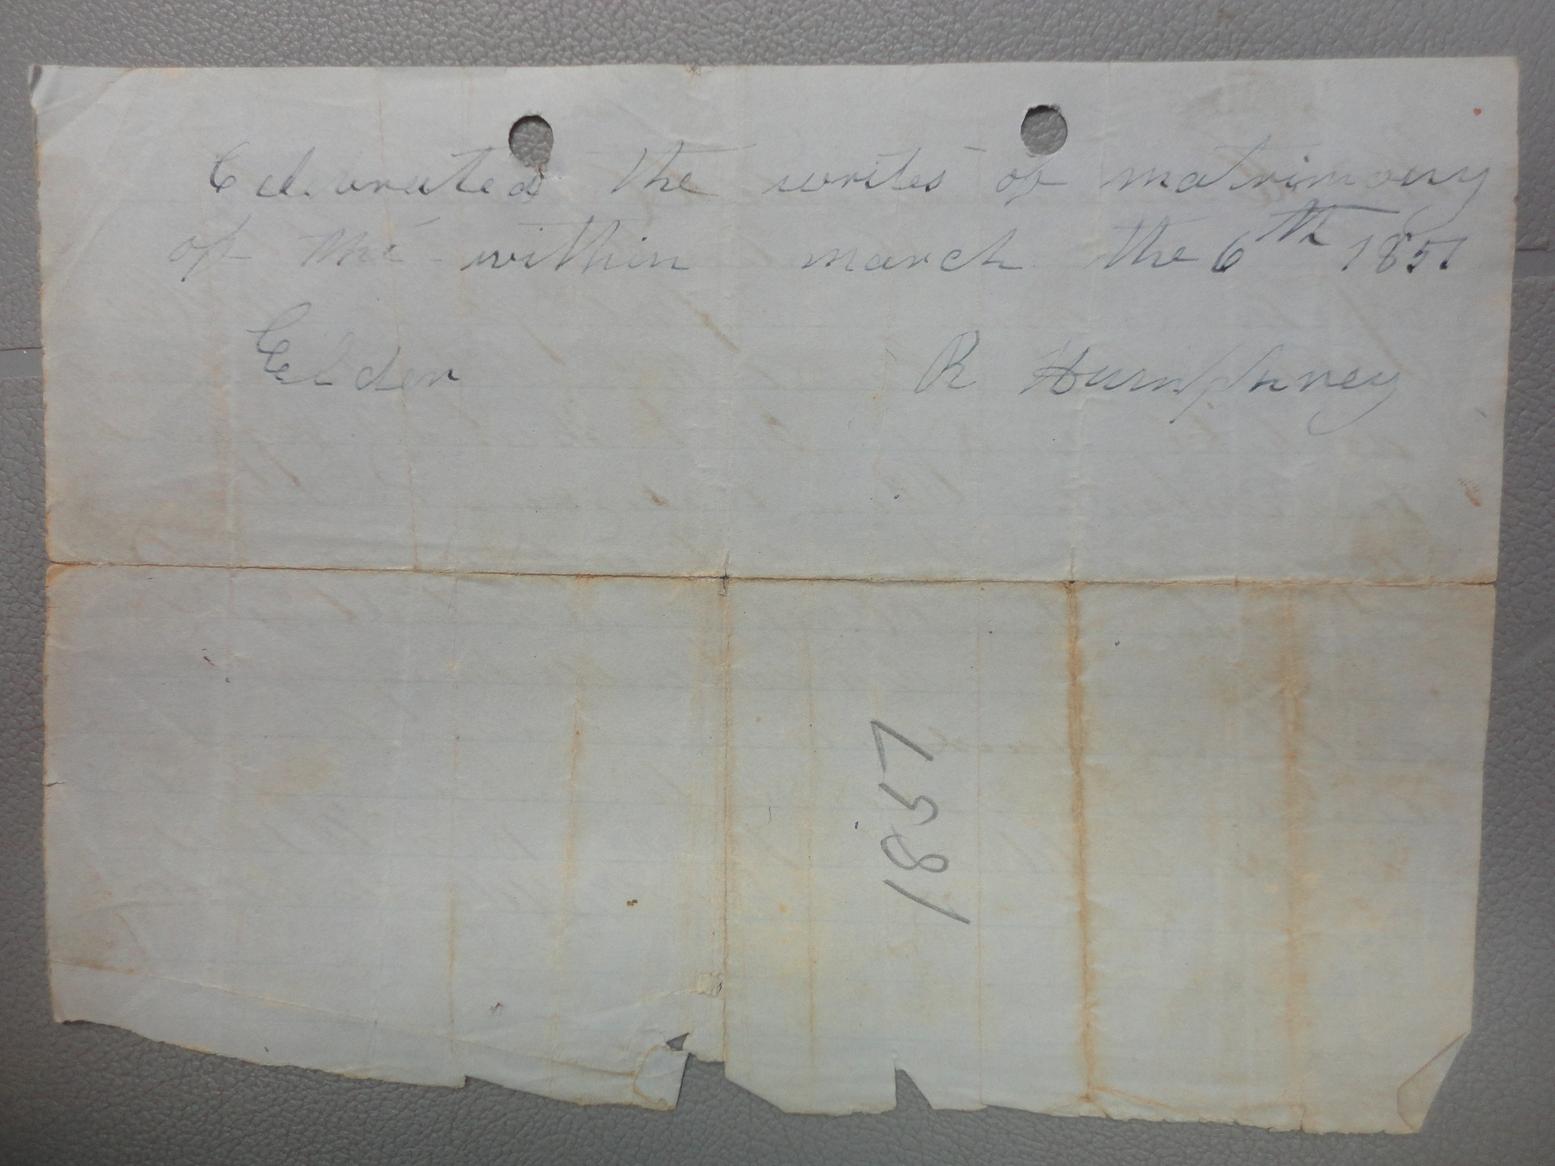 Celebrated the writes of matrimony
of the within march the 6th 1857
Elder R Humphrey
1857